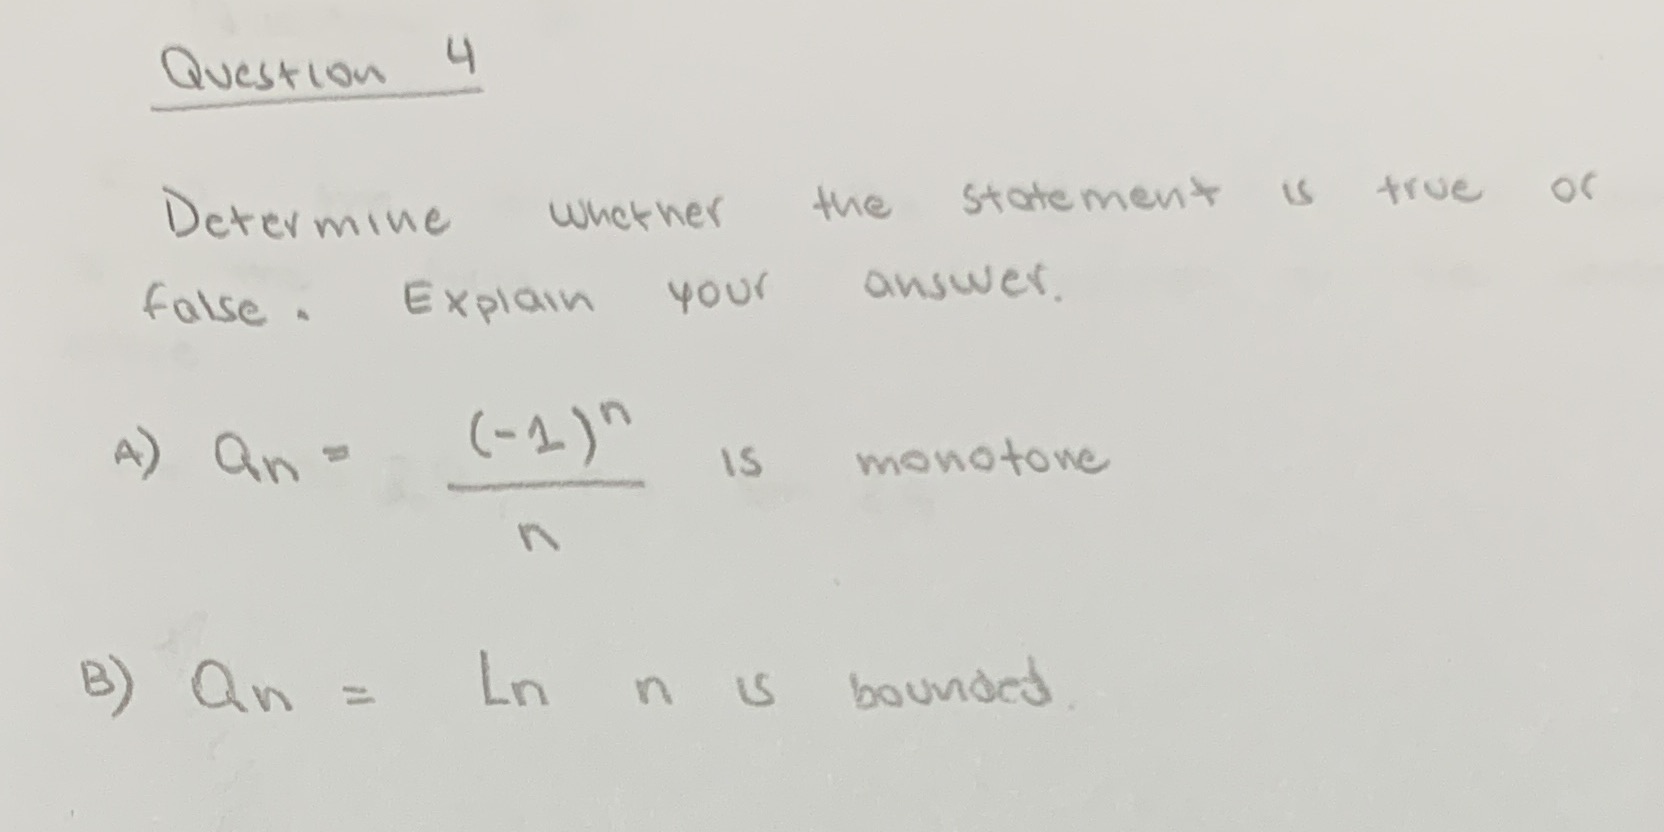 Question 4
Determine whether the statement is true or
false. Explain your answer.
A) an = (-1)^n / n is monotone
B) an = Ln n is bounded.